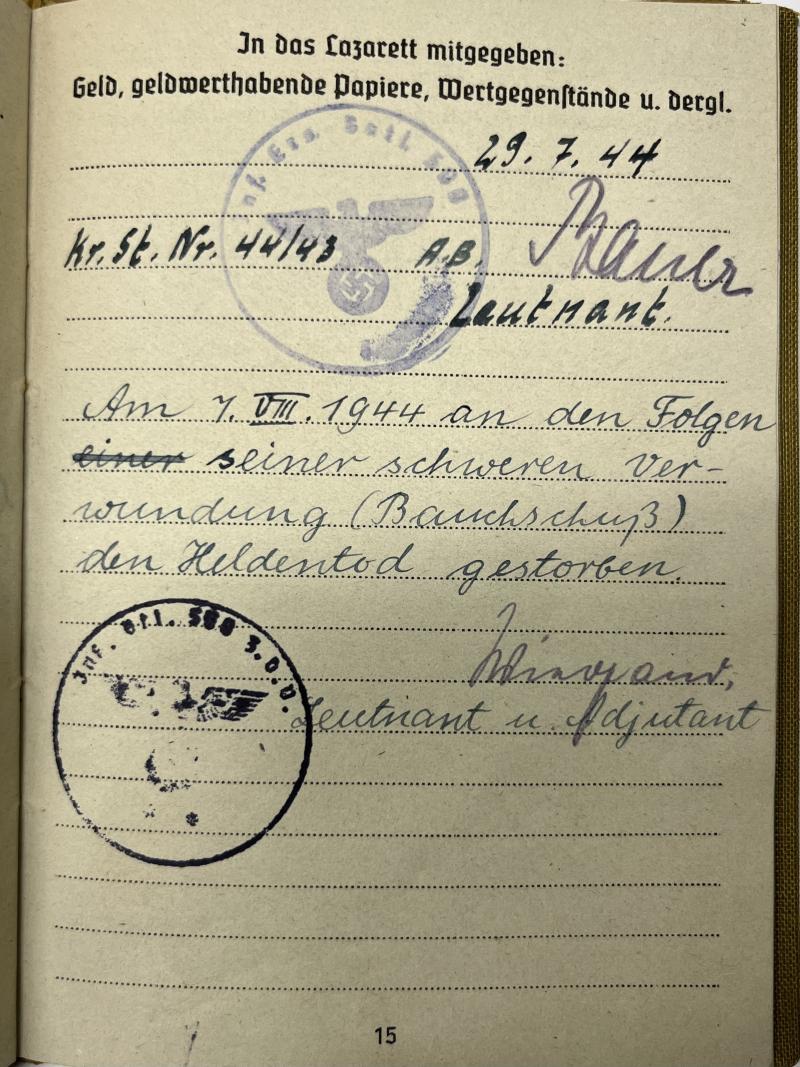 In das Lazarett mitgegeben:
Geld, geldwerthabende Papiere, Wertgegenstände u. dergl.
Inf. Ers. Batl. 500
29. 7. 44
Kr. St. Nr. 44/43 A.B. Bauer
Leutnant.
Am 7. VIII. 1944 an den Folgen
einer seiner schweren Ver-
wundung (Bauchschuß)
den Heldentod gestorben.
Inf. Btl. 500 z.b.V.
Leutnant u. Adjutant
15